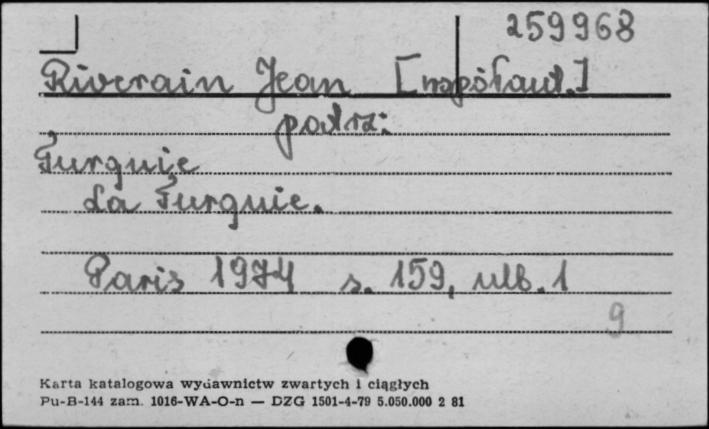 259968
Riverain Jean [współaut.]
patrz:
Turquie
La Turquie.
Paris 1974 s. 159, ulb. 1
9
Karta katalogowa wydawnictw zwartych i ciągłych
Pu-B-144 zam. 1016-WA-O-n — DZG 1501-4-79 5.050.000 2 81